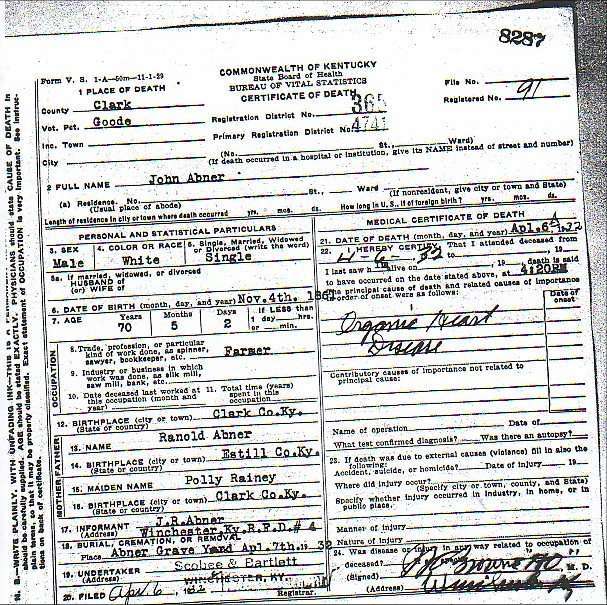 8287
Form V. S. 1-A—50m—11-1-29
COMMONWEALTH OF KENTUCKY
State Board of Health
BUREAU OF VITAL STATISTICS
CERTIFICATE OF DEATH
File No.
Registered No. 91
1 PLACE OF DEATH
County Clark
Vot. Pct. Goode
Inc. Town
City
Registration District No. 365
Primary Registration District No. 4741
(No. St., Ward)
(If death occurred in a hospital or institution, give its NAME instead of street and number)
2 FULL NAME John Abner
(a) Residence. No. St., Ward (If nonresident, give city or town and State)
(Usual place of abode)
Length of residence in city or town where death occurred yrs. mos. ds. How long in U. S., if of foreign birth? yrs. mos. ds.
PERSONAL AND STATISTICAL PARTICULARS
3. SEX Male
4. COLOR OR RACE White
5. Single, Married, Widowed or Divorced (write the word) Single
5a. If married, widowed, or divorced
HUSBAND of
(or) WIFE of
6. DATE OF BIRTH (month, day, and year) Nov. 4th. 1861
7. AGE Years 70 Months 5 Days 2 If LESS than 1 day hrs. or min.
OCCUPATION
8. Trade, profession, or particular
kind of work done, as spinner,
sawyer, bookkeeper, etc. Farmer
9. Industry or business in which
work was done, as silk mill,
saw mill, bank, etc.
10. Date deceased last worked at this occupation (month and year)
11. Total time (years) spent in this occupation
12. BIRTHPLACE (city or town) Clark Co.Ky.
(State or country)
FATHER
13. NAME Ranold Abner
14. BIRTHPLACE (city or town) Estill Co.Ky.
(State or country)
MOTHER
15. MAIDEN NAME Polly Rainey
16. BIRTHPLACE (city or town) Clark Co.Ky.
(State or country)
17. INFORMANT J.R.Abner
(Address) Winchester,Ky.R.F.D.# 4
18. BURIAL, CREMATION, OR REMOVAL
Place Abner Grave Yard Apl.7th.19 32
19. UNDERTAKER Scobee & Bartlett
(Address) WINCHESTER, KY.
20. FILED Apr. 6, 32
Registrar.
MEDICAL CERTIFICATE OF DEATH
21. DATE OF DEATH (month, day, and year) Apl.6th.32
22. I HEREBY CERTIFY, That I attended deceased from
4 6 32 to 19
I last saw h im alive on 19 death is said
to have occurred on the date stated above, at 4:20PM
The principal cause of death and related causes of importance
in order of onset were as follows:
Date of onset
Organic Heart
Disease
Contributory causes of importance not related to
principal cause:
Name of operation Date of
What test confirmed diagnosis? Was there an autopsy?
23. If death was due to external causes (violence) fill in also the
following:
Accident, suicide, or homicide? Date of injury 19
Where did injury occur?
(Specify city or town, county, and State)
Specify whether injury occurred in industry, in home, or in
public place.
Manner of injury
Nature of injury
24. Was disease or injury in any way related to occupation of
deceased?
(Signed) Browne M. D.
(Address) Winchester Ky
N. B.—WRITE PLAINLY, WITH UNFADING INK—THIS IS A
should be carefully supplied. AGE should be stated EXACTLY. PHYSICIANS should state CAUSE OF DEATH in
plain terms, so that it may be properly classified. Exact statement of OCCUPATION is very important. See instruc-
tions on back of certificate.